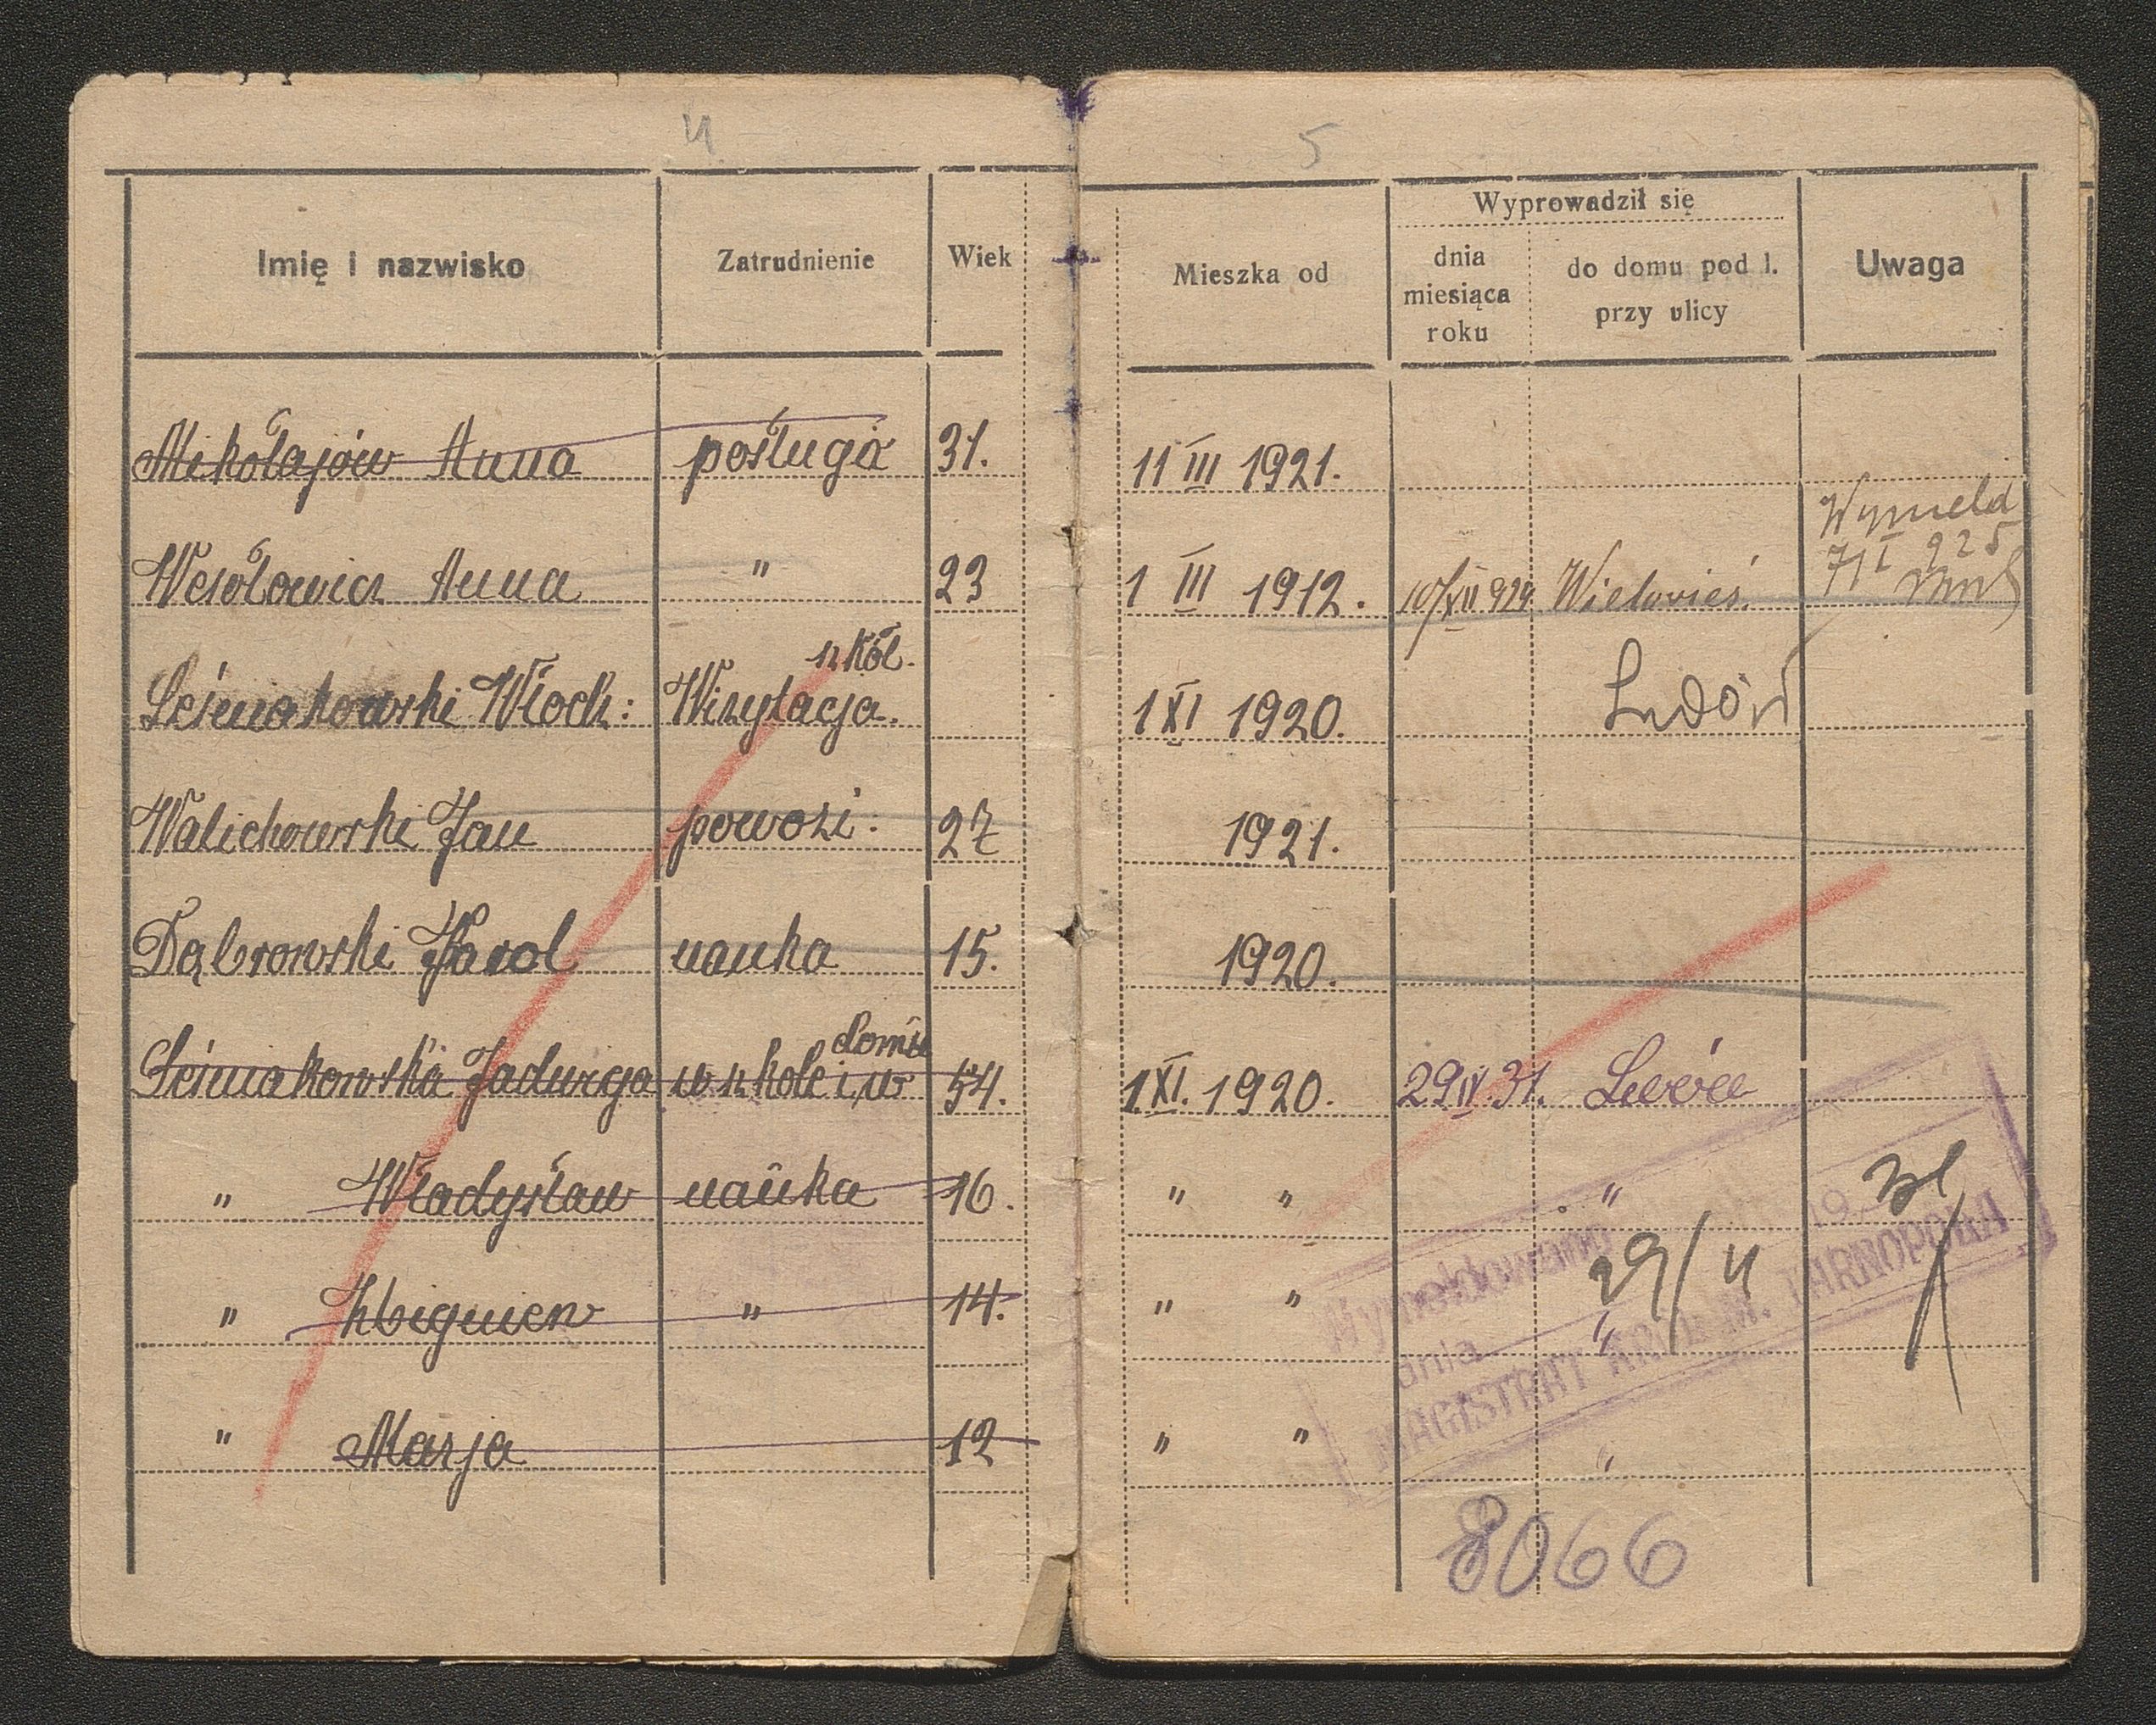 4
5
Imię i nazwisko Zatrudnienie Wiek Mieszka od Wyprowadził się Uwaga
dnia miesiąca roku do domu pod l. przy ulicy
Mikołajów Anna posługa 31. 11 III 1921.
Wymeld
Wesołowicz Anna " 23 1 III 1912. 10/XII 924 7/I 925
szkól.
Leśniakowski Włodz: Wizytacja. 1 XI 1920. Lwów
Walichowski Jan powozi: 27 1921.
Dąbrowski Karol nauka 15. 1920.
domu
Leśniakowska Jadwiga w szkole i w 54. 1 XI. 1920. 29 IV. 31. Lwów
" Władysław nauka 16. " " "
31
29/4
" Zbigniew " 14. " " "
" Marja 12 " " "
Wymeldowano
dnia 19
MAGISTRAT KRÓL. M. TARNOPOLA
8066